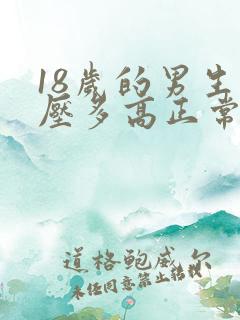 18歲的男生
壓多高正常
道格鲍威尔
未经同意禁止转载